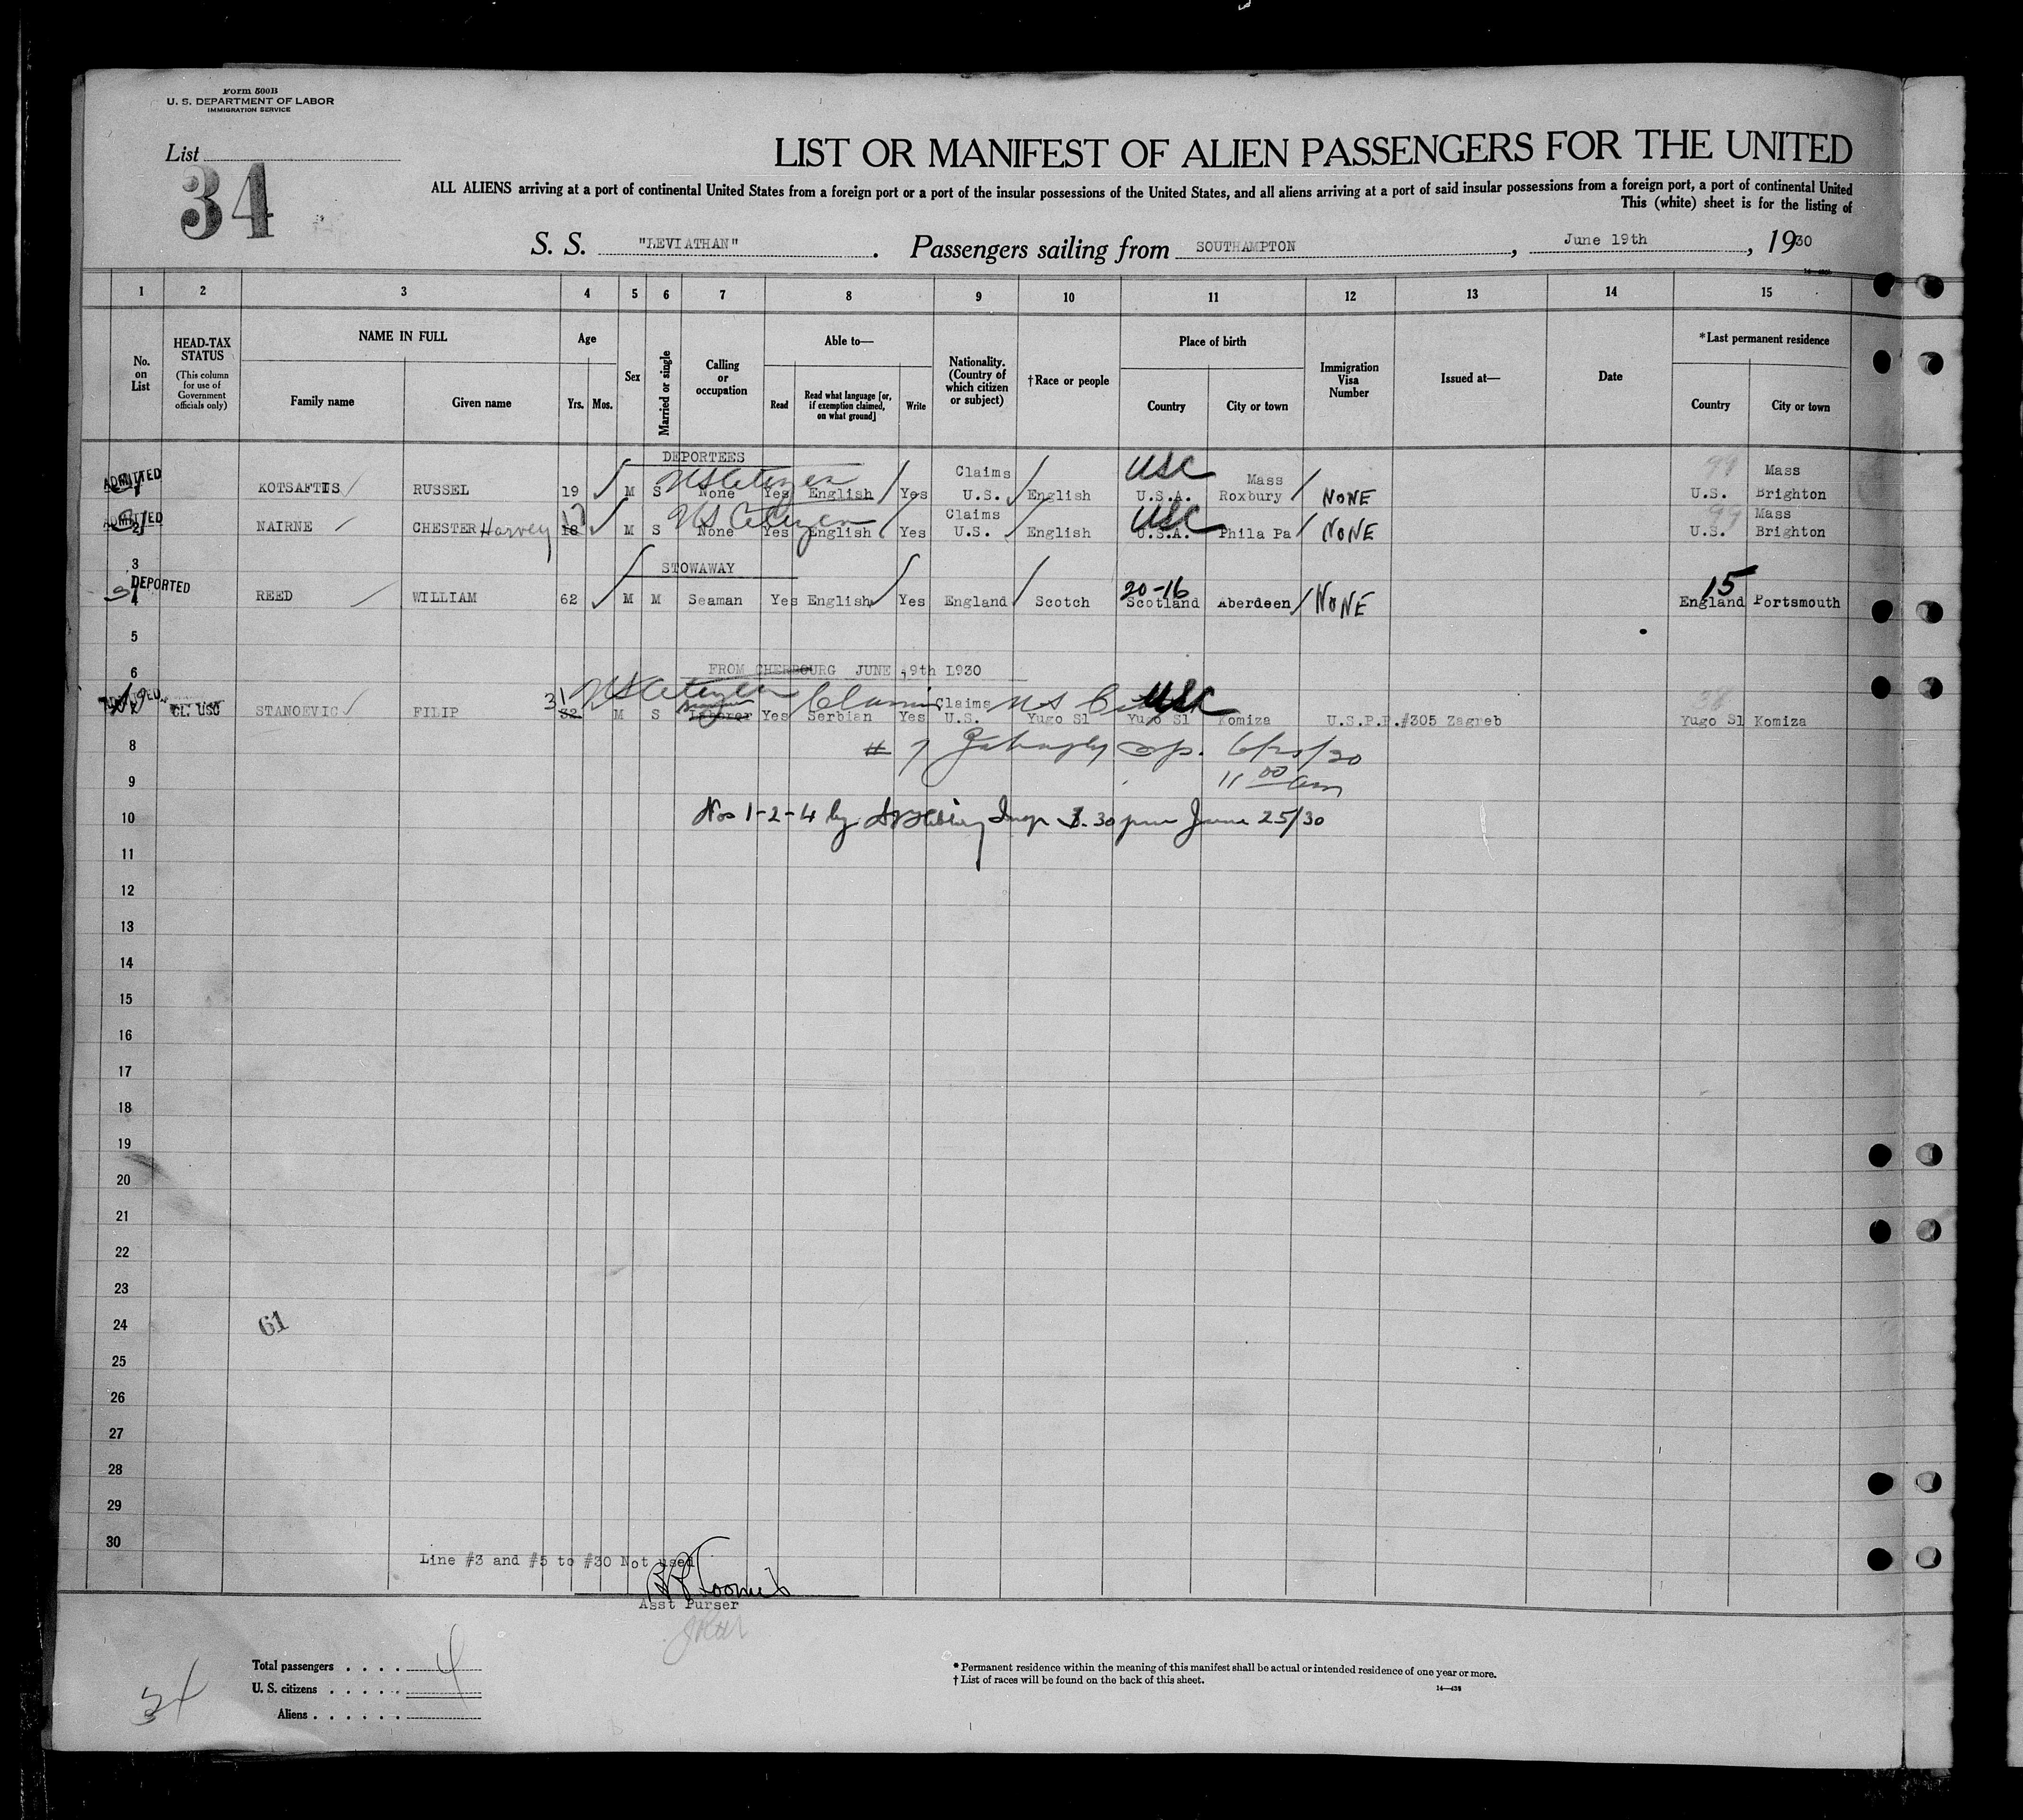 Form 500B
U. S. DEPARTMENT OF LABOR
IMMIGRATION SERVICE
List
34
LIST OR MANIFEST OF ALIEN PASSENGERS FOR THE UNITED
ALL ALIENS arriving at a port of continental United States from a foreign port or a port of the insular possessions of the United States, and all aliens arriving at a port of said insular possessions from a foreign port, a port of continental United
This (white) sheet is for the listing of
S. S. "LEVIATHAN" . Passengers sailing from SOUTHAMPTON , June 19th , 1930
1 2 3 4 5 6 7 8 9 10 11 12 13 14 15
No. on List
HEAD-TAX STATUS (This column for use of Government officials only)
NAME IN FULL
Family name Given name
Age
Yrs. Mos.
Sex
Married or single
Calling or occupation
Able to—
Read Read what language [or, if exemption claimed, on what ground] Write
Nationality. (Country of which citizen or subject)
†Race or people
Place of birth
Country City or town
Immigration Visa Number
Issued at—
Date
*Last permanent residence
Country City or town
DEPORTEES
ADMITTED US Citizen Claims USC Mass 99 Mass
KOTSAFTIS RUSSEL 19 M S None Yes English Yes U.S. English U.S.A. Roxbury NONE U.S. Brighton
ADMITTED 17 US Citizen Claims USC 99 Mass
2 NAIRNE CHESTER Harvey 18 M S None Yes English Yes U.S. English U.S.A. Phila Pa NONE U.S. Brighton
3 STOWAWAY
DEPORTED 20-16 15
4 REED WILLIAM 62 M M Seaman Yes English Yes England Scotch Scotland Aberdeen NONE England Portsmouth
5
6 FROM CHERBOURG JUNE 19th 1930
31 US Citizen Claims Claims US USC
CL. USC STANOEVIC FILIP 32 M S Laborer Yes Serbian Yes U.S. Yugo Sl Yugo Sl Komiza U.S.P.P.#305 Zagreb Yugo Sl Komiza
8 # 7
9 11 00 am
10 Nos 1-2-4 by Insp 30 pm June 25/30
11
12
13
14
15
16
17
18
19
20
21
22
23
24
61
25
26
27
28
29
30
Line #3 and #5 to #30 Not used
Asst Purser
Total passengers . . . . 4
U. S. citizens . . . . .
Aliens . . . . . .
* Permanent residence within the meaning of this manifest shall be actual or intended residence of one year or more.
† List of races will be found on the back of this sheet.
14—438